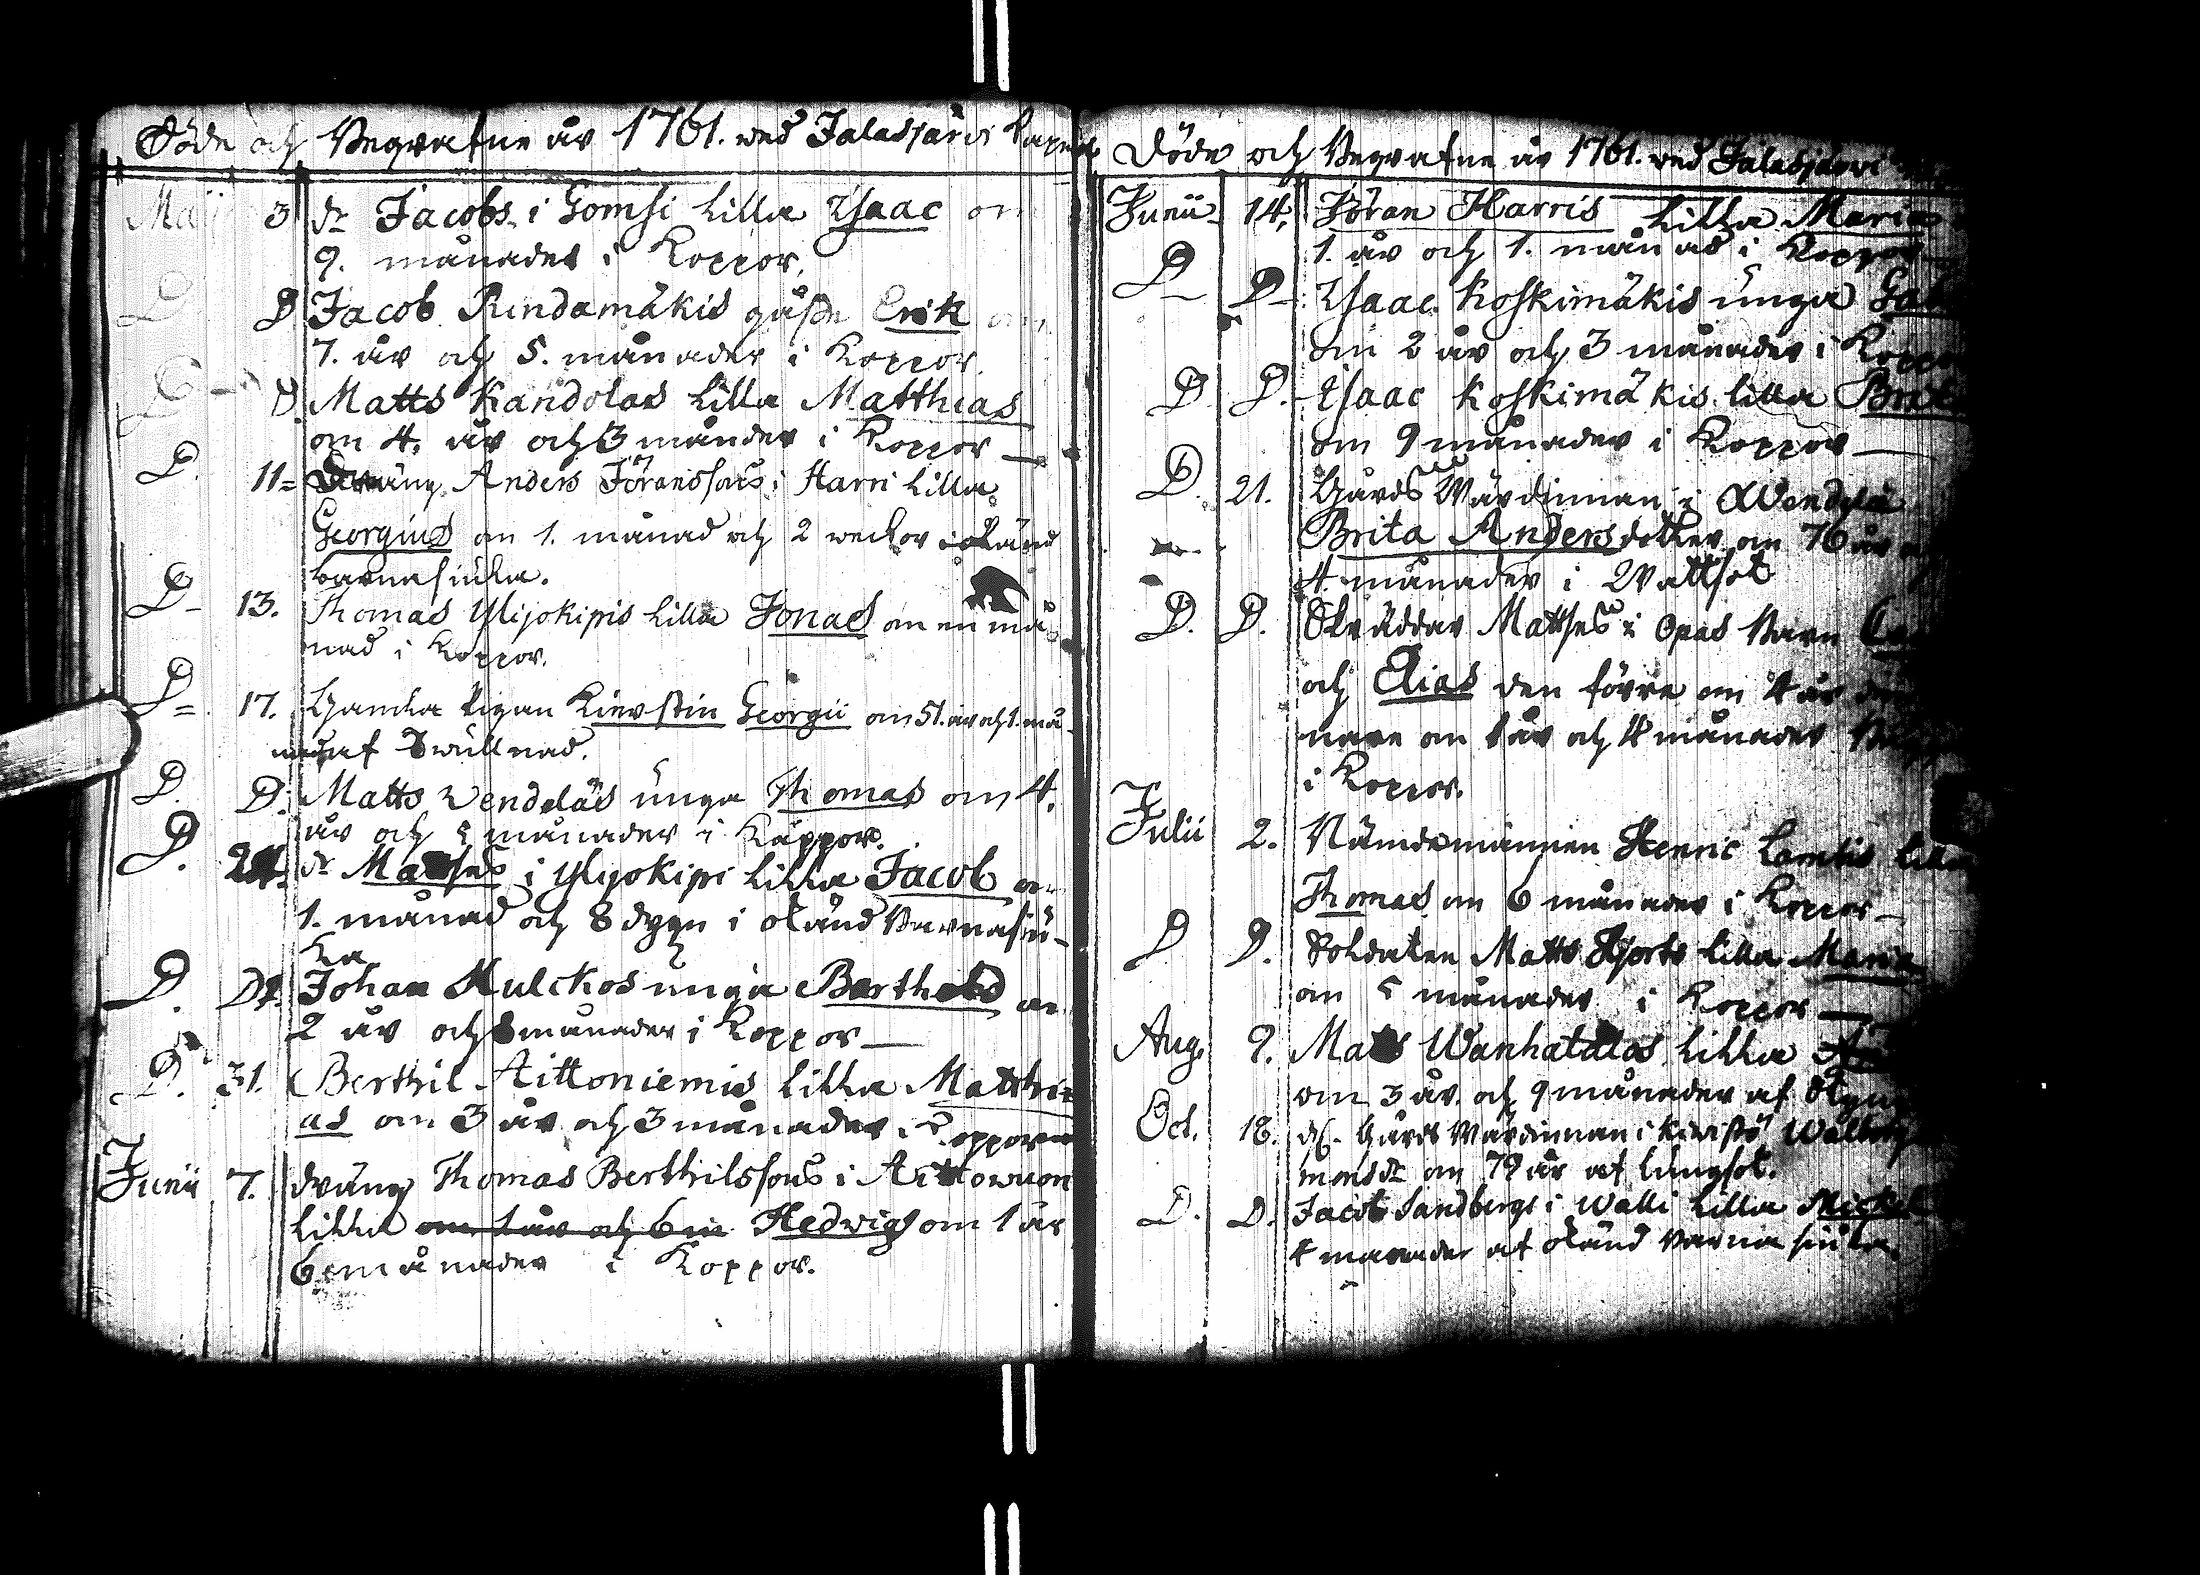 Döde och Begrafne år 1761. wed Jalasjärvi
Maij 3 dr Jacobs i Gomsi lilla Ysaac om
9. månader i Koppor.
D D Jacob Rindamäkis gåsse Erik om
7. år och 5. månader i Koppor.
D D Matts Kandolas lilla Matthias
om 4. år och 3 månder i Koppor
D. 11 Dräng Anders Jöranssons i Harri lilla
Georgius om 1. månad och 2 weckor i okänd
barnasiuka.
D 13. Thomas Ylijokipis lilla Jonas om en må
nad i Koppor.
D 17. Gamla Pigan Kierstin Georgii om 51. år och 1. må
nad af Swullnad.
D. D. Matts Wendeläs unga Thomas om 4.
år och 5 månader i Käppor.
D. 24. dr Matthes i Ylijokipi lilla Jacob om
1. månad och 8 dygn i okänd Barnasiu-
ka
D. D. Johan Mulckos unga Berthold om
2 år och 8 månader i Koppor
D. 31. Berthil Aittoniemis lilla Matthi-
as om 3 år och 3 månader i Kopporna
Junii 7. dräng Thomas Berthilssons i
lilla om 1 år och 6 m Hedwig om 1 år
6 månader i Koppor.
Döde och Begrafne år 1761. wed Jalasjärvi
Junii 14. Jöran Harris lilla Maria
1. år och 1. månad i Koppor
D D Ysaac Koskimäkis unga
om 2 år och 3 månader i Koppor
D D. Ysaac Koskimäkis lilla Brita
om 9 månader i Koppor
D. 21. Gårds Wärdinnan i Wendelä
Brita Andersdotter om 76 år
4. månader i Wattsot
D. D. Skräddar Matthes i Opas Barn
och Elias den förre om 4 år den
nare om 1 år och 4 månader
i Koppor.
Julii 2. Nämdemannen Henric Lamlis lilla
Thomas om 6 månader i Koppor
D D. Soldaten Matts Hjorts lilla Maria
om 5 månader i Koppor
Aug. 9. Matts Wanhatalos lilla
om 3 år och 9 månader af
Oct. 18. Gårds Wärdinnan i Kiwistö
monsdr om 79 år af lungsot.
D. D. Jacob Sandbergs i Walli lilla Mickel
4 månader af okänd Barna siuka.